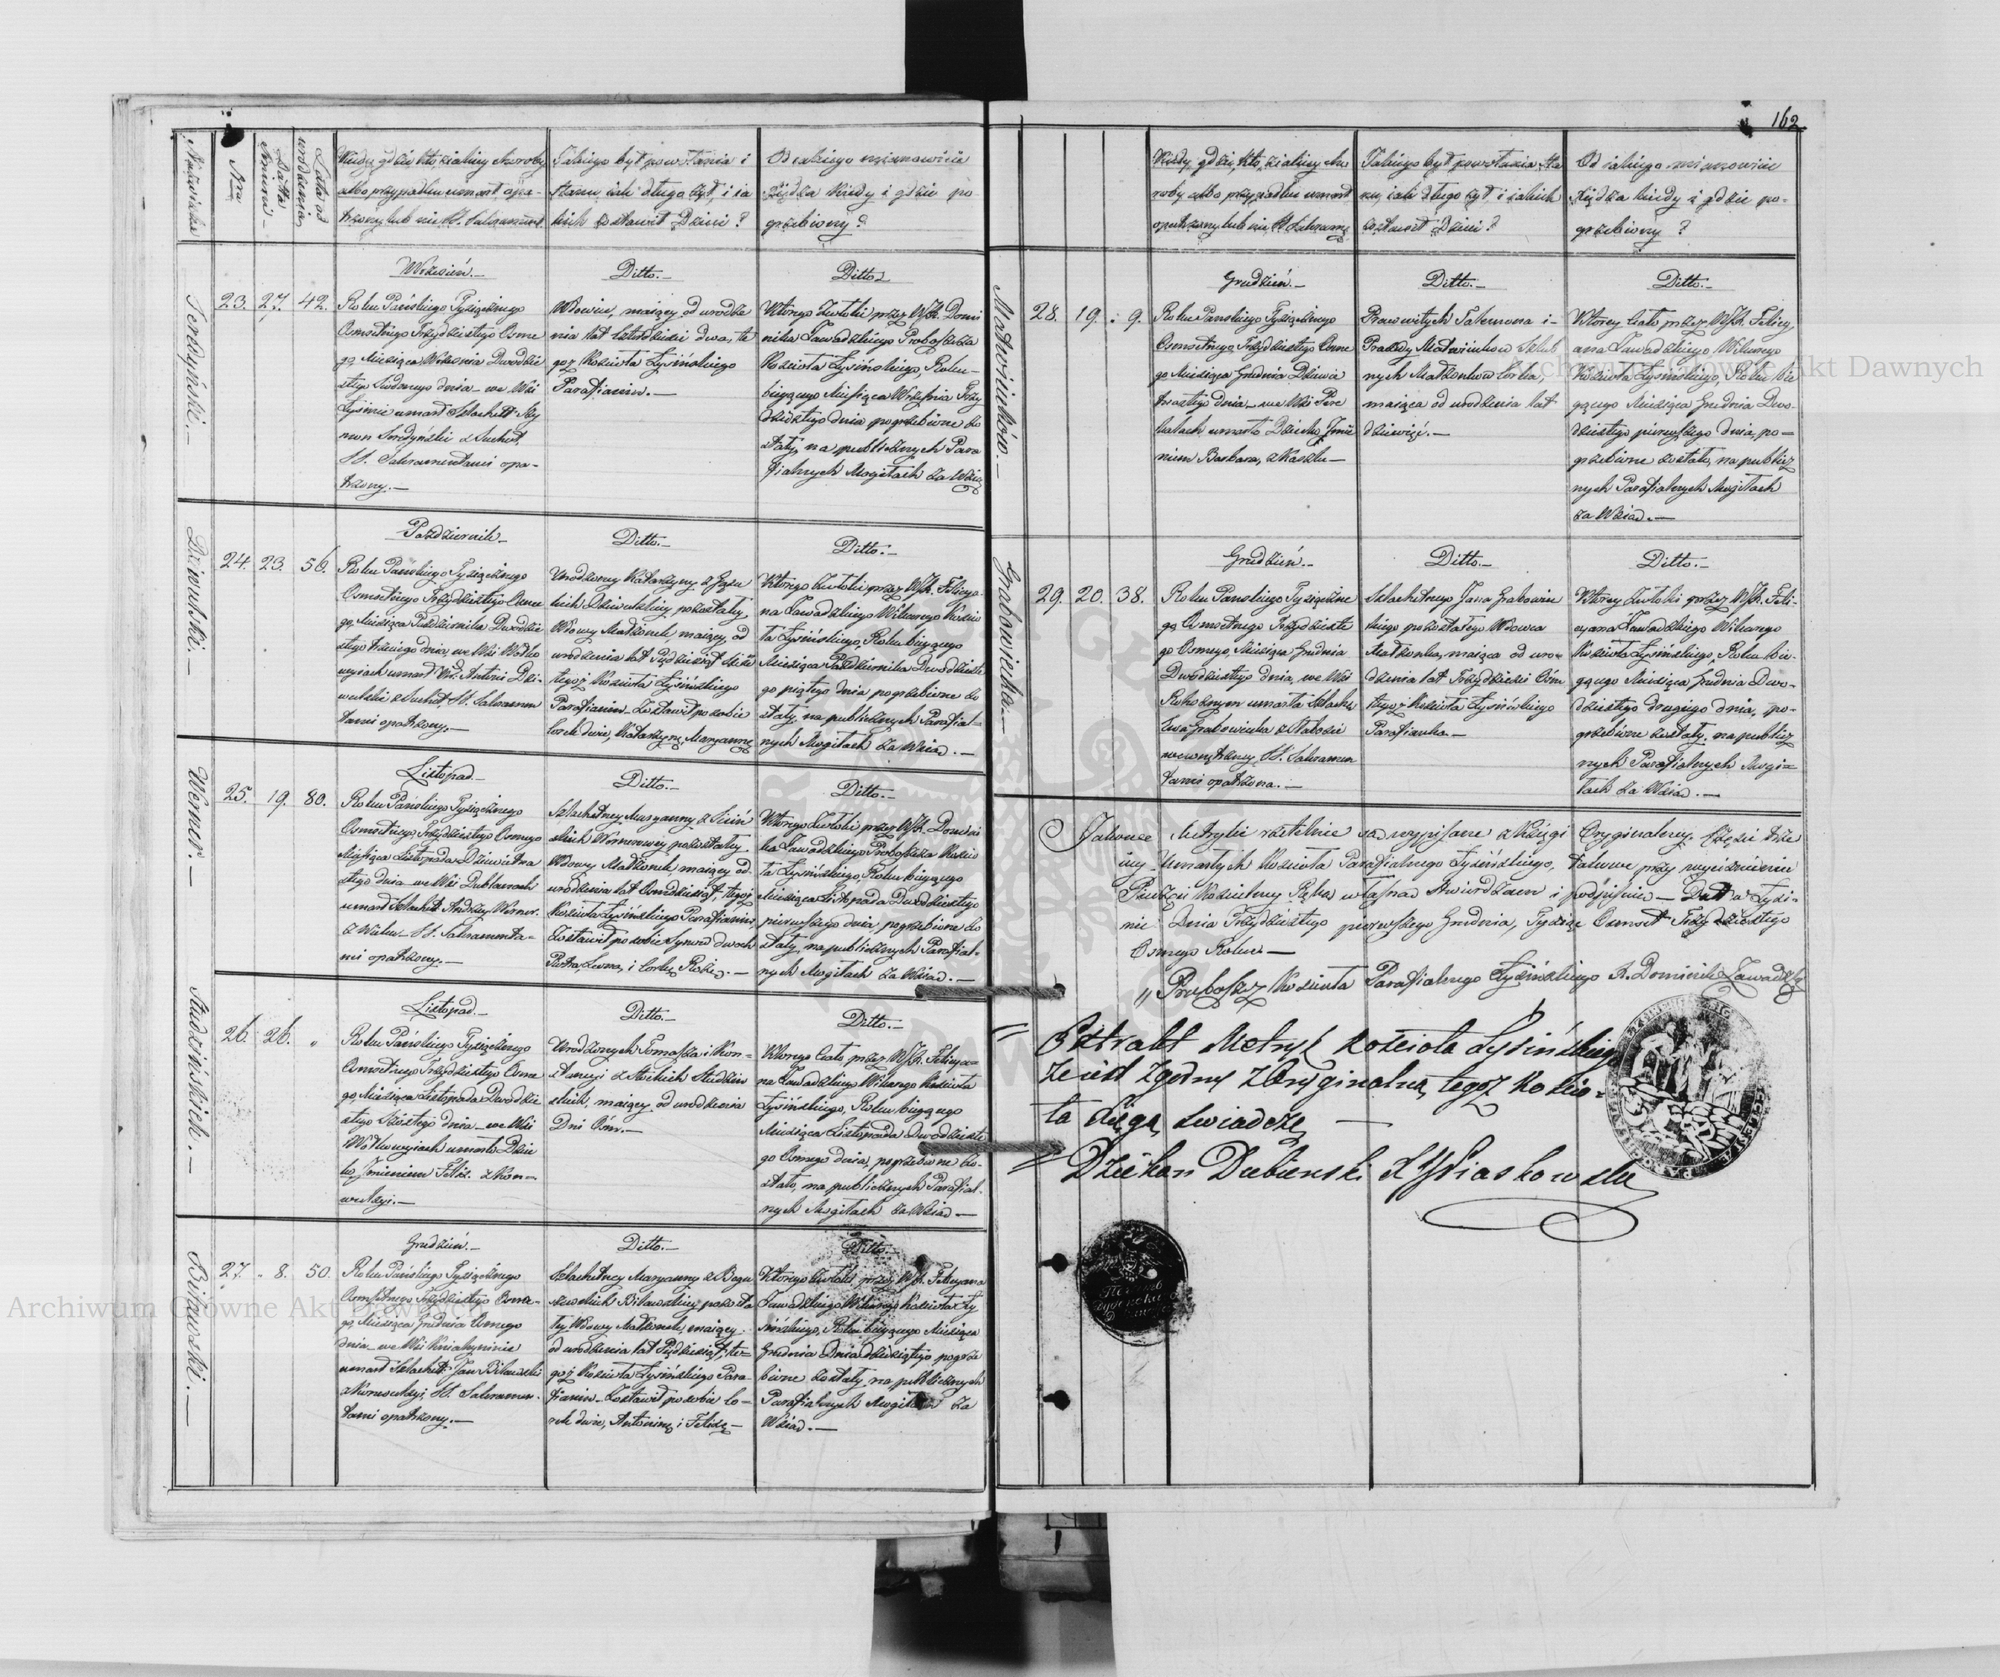 162
Nazwiska
Nro
Datta
Śmierci
Lata od
urodzenia
Kiedy, gdzie, kto, z jakiey choroby
albo przypadku umarł, opa-
trzony lub nie SS. Sakramentami
Jakiego był powołania i
stanu, jak długo żył, i ja
kich zostawił Dzieci?
Od jakiego mianowicie
Xiędza kiedy i gdzie po
grzebiony?
23. 27. 42.
Wrzesień.—
Roku Pańskiego Tysiącznego
Osmsetnego Trzydziestego Osme
go, Miesiąca Września Dwudzie
stego Siódmego dnia we Wsi
Łysinie umarł Szlachett. Szy
mon z Suchot
SS. Sakramentami opa-
trzony.—
Ditto.—
Wdowiec, maiący od urodze
nia lat czterdzieści dwa, te
goż Kościoła Łysińskiego
Parafianin.—
Ditto.—
Którego zwłoki przez WJX. Domi
nika Zawadzkiego Proboszcza
Kościoła Łysińskiego, Roku
bieżącego Miesiąca Września Trzy
dziestego dnia pogrzebione zo
stały, na publicznych Para
fialnych Mogiłach za Wsią
Dziewulski.—
24. 23. 56.
Październik.—
Roku Pańskiego Tysiącznego
Osmsetnego Trzydziestego Osme
go, Miesiąca Października Dwudzie
stego trzeciego dnia, we Wsi Wołko
wyiach umarł Ur. Antoni Dzie-
wulski z Suchot, SS. Sakramen
tami opatrzony.—
Ditto.—
Urodzoney Katarzyny z
kich Dziewulskiey pozostałey
Wdowy Małżonek, maiący od
urodzenia lat Pięćdziesiąt sześć
tegoż Kościoła Łysińskiego
Parafianin. Zostawił po sobie
Corek dwie, Katarzynę, Maryannę
Ditto.—
Którego zwłoki przez WJX. Felicya-
na Zawadzkiego Wikarego Kościo
ła Łysińskiego, Roku bieżącego
Miesiąca Października Dwudzieste
go piątego dnia pogrzebione zo
stały, na publicznych Parafial-
nych Mogiłach za Wsią.—
Werner.—
25. 19. 80.
Listopad.—
Roku Pańskiego Tysiącznego
Osmsetnego Trzydziestego Osmego
Miesiąca Listopada Dziewiętna
stego dnia we Wsi Dublanach
umarł Szlachett. Andrzey Werner
z Wieku SS. Sakramenta-
mi opatrzony.—
Ditto.—
Szlachetney Maryanny z
skich Wernerowey pozostałey
Wdowy Małżonek, maiący od
urodzenia lat Osmdziesiąt, tegoż
Kościoła Łysińskiego Parafianin,
Zostawił po sobie Synow dwoch
Piotra, i Corkę Rozię.—
Ditto.—
Którego zwłoki przez WJX. Domini
ka Zawadzkiego Proboszcza Kościo
ła Łysińskiego, Roku bieżącego
Miesiąca Listopada Dwudziestego
pierwszego dnia, pogrzebione zo
stały, na publicznych Parafial-
nych Mogiłach za Wsią.—
Studzińskich.—
26. 26. "
Listopad.—
Roku Pańskiego Tysiącznego
Osmsetnego Trzydziestego Osme
go, Miesiąca Listopada Dwudzie
stego Szóstego dnia we Wsi
Wołkowyiach umarło Dziec
ko, Imieniem Felix z Kon-
wulsyi.—
Ditto.—
Urodzonych Tomasza i Kon-
stancyi z Studziń
skich, maiący od urodzenia
Dni Osm.—
Ditto.—
Którego ciało przez WJX. Felicya-
na Zawadzkiego Wikarego Kościoła
Łysińskiego, Roku bieżącego
Miesiąca Listopada Dwudzieste
go Osmego dnia, pogrzebione zo-
stało, na publicznych Parafial-
nych Mogiłach za Wsią.—
27. 8. 50.
Grudzień.—
Roku Pańskiego Tysiącznego
Osmsetnego Trzydziestego Osme-
go, Miesiąca Grudnia Osmego
dnia we Wsi Kniahyninie
umarł Szlachett. Jan
SS. Sakramen-
tami opatrzony.—
Ditto.—
Szlachetney Maryanny z
pozosta
łey Wdowy Małżonek, maiący
od urodzenia lat Pięćdziesiąt, te-
goż Kościoła Łysińskiego Para-
fianin. Zostawił po sobie Co-
rek dwie, Antoninę i Felixę.—
Ditto.—
Którego zwłoki przez WJX. Felicyana
Zawadzkiego Wikarego Kościoła Ły
sińskiego, Roku bieżącego Miesiąca
Grudnia Dnia dziesiątego pogrze
bione zostały, na publicznych
Parafialnych Mogiłach za
Wsią.—
Kiedy, gdzie, kto, z jakiey cho
roby albo przypadku umarł
opatrzony lub nie SS. Sakramen
Jakiego był powołania sta
nu, jak długo żył i jakich
zostawił Dzieci?
Od jakiego mianowicie
Xiędza kiedy i gdzie po-
grzebiony?
Matwieiuków.—
28. 19. 9.
Grudzień.—
Roku Pańskiego Tysiącznego
Osmsetnego Trzydziestego Osme
go Miesiąca Grudnia Dziewię
tnastego dnia, we Wsi
umarło Dziecko, Imie
niem Barbara, z Kaszlu—
Ditto.—
Prawowitych i
Matwieiukow Szlub
nych Małżonkow Corka,
maiąca od urodzenia lat
dziewięć.—
Ditto.—
Którey ciało przez WJX. Felicy
ana Zawadzkiego, Wikarego
Kościoła Łysińskiego, Roku bie
żącego Miesiąca Grudnia Dwu-
dziestego pierwszego dnia, po-
grzebione zostało, na publicz
nych Parafialnych Mogiłach
za Wsią.—
Grabowiecka.—
29. 20. 38.
Grudzień.—
Roku Pańskiego Tysiączne
go Osmsetnego Trzydzieste
go Osmego, Miesiąca Grudnia
Dwudziestego dnia, we Wsi
umarła Szlachet.
Ewa Grabowiecka z słabości
wewnętrzney, SS. Sakramen
tami opatrzona.—
Ditto.—
Szlachetnego Jana Grabowiec
kiego pozostałego Wdowca
Małżonka, maiąca od uro-
dzenia lat Trzydzieści Osm
tegoż Kościoła Łysińskiego
Parafianka.—
Ditto.—
Którey zwłoki przez WJX. Feli-
cyana Zawadzkiego Wikarego
Kościoła Łysińskiego, Roku bie-
żącego Miesiąca Grudnia Dwu-
dziestego drugiego dnia, po-
grzebione zostały, na publicz
nych Parafialnych Mogi-
łach za Wsią.—
Jakowe Metryki rzetelnie są wypisane z Xięgi Oryginalney, Części trze
ciey Umarłych Kościoła Parafialnego Łysińskiego, takowe przy wyciśnieniu
Pieczęci Kościelney Ręką własną stwierdzam i podpisuię— Dat w Łysi-
nie Dnia Trzydziestego pierwszego Grudnia, Tysiąc Osmset Trzydziestego
Osmego Roku—
Proboszcz Kościoła Parafialnego Łysińskiego X. Dominik Zawadzki
Extrakt Metryk Kościoła Łysińskiego
że iest zgodny z Oryginalną tegoż Kościo-
ła Xięgą świadczę —
Dziekan Dubieński X
Archiwum Główne Akt Dawnych
Archiwum Główne Akt Dawnych